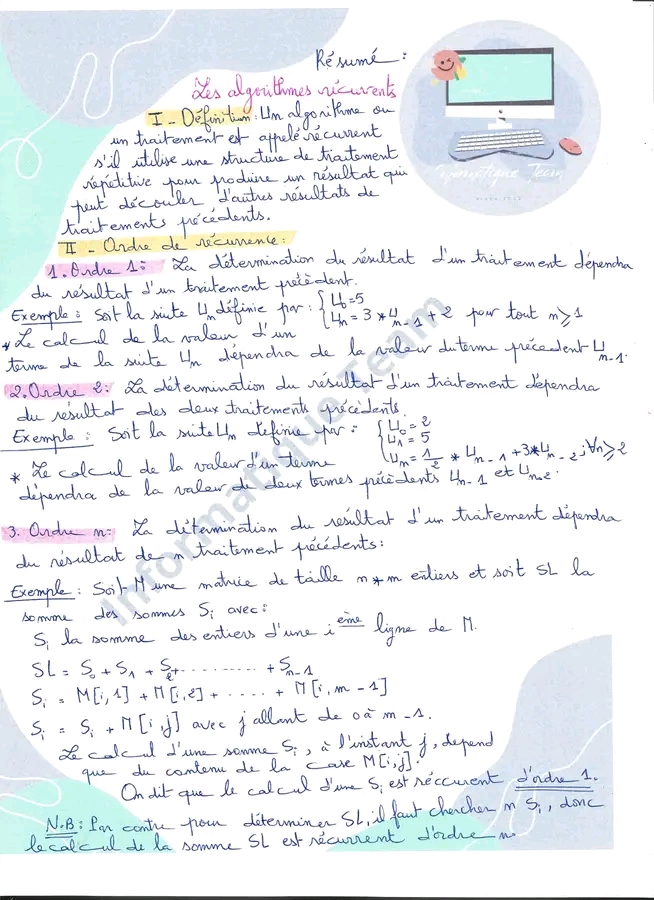 Résumé :
Les algorithmes récurrents
I - Définition : Un algorithme ou
un traitement est appelé récurrent
s'il utilise une structure de traitement
répétitive pour produire un résultat qui
peut découler d'autres résultats de
traitements précédents.
Informatique Team
II - Ordre de récurrence :
1. Ordre 1 : La détermination du résultat d'un traitement dépendra
du résultat d'un traitement précédent.
Exemple : Soit la suite Un définie par : { U0 = 5
Un = 3 * Un-1 + 2 pour tout n ≥ 1
* Le calcul de la valeur d'un
terme de la suite Un dépendra de la valeur du terme précedent Un-1.
2. Ordre 2 : La détermination du résultat d'un traitement dépendra
du résultat des deux traitements précédents.
Exemple : Soit la suite Un définie par : { U0 = 2
U1 = 5
Un = 1/2 * Un-1 + 3 * Un-2 ; ∀n ≥ 2
* Le calcul de la valeur d'un terme
dépendra de la valeur de deux termes précédents Un-1 et Un-2.
3. Ordre n : La détermination du résultat d'un traitement dépendra
du résultat de n traitement précédents :
Exemple : Soit M une matrice de taille n * m entiers et soit SL la
somme des sommes Si avec :
Si la somme des entiers d'une i ème ligne de M.
SL = S0 + S1 + S2 + .......... + Sn-1
Si = M[i,1] + M[i,2] + ..... + M[i, m-1]
Si = Si + M[i,j] avec j allant de 0 à m-1.
Le calcul d'une somme Si, à l'instant j, depend
que du contenu de la case M[i,j].
On dit que le calcul d'une Si est réccurent d'ordre 1.
N.B : Par contre pour déterminer SL, il faut chercher n Si, donc
le calcul de la somme SL est récurrent d'ordre n.
Informatique Team